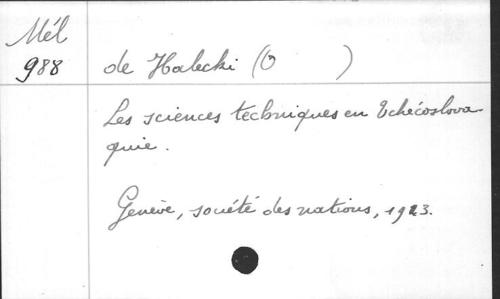 Mél
988
de Halecki (O )
Les sciences techniques en Tchécoslova
quie.
Genève, société des nations, 1923.